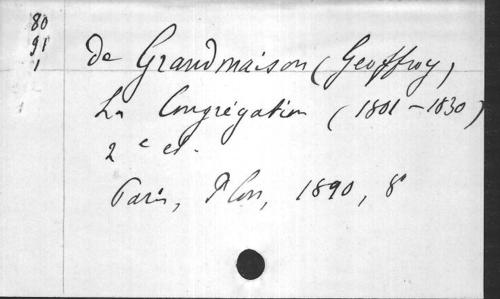 80
91
1
de Grandmaison (Geoffroy)
La Congrégation (1801-1830)
2e ed.
Paris, Plon, 1890, 8°